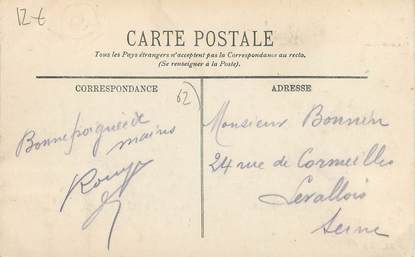 12-€
CARTE POSTALE
Tous les Pays étrangers n'acceptent pas la Correspondance au recto.
(Se renseigner à la Poste).
CORRESPONDANCE
ADRESSE
62
Bonne poignée de
mains
Monsieur Bonnin
24 rue de Cormeilles
Levallois
Seine